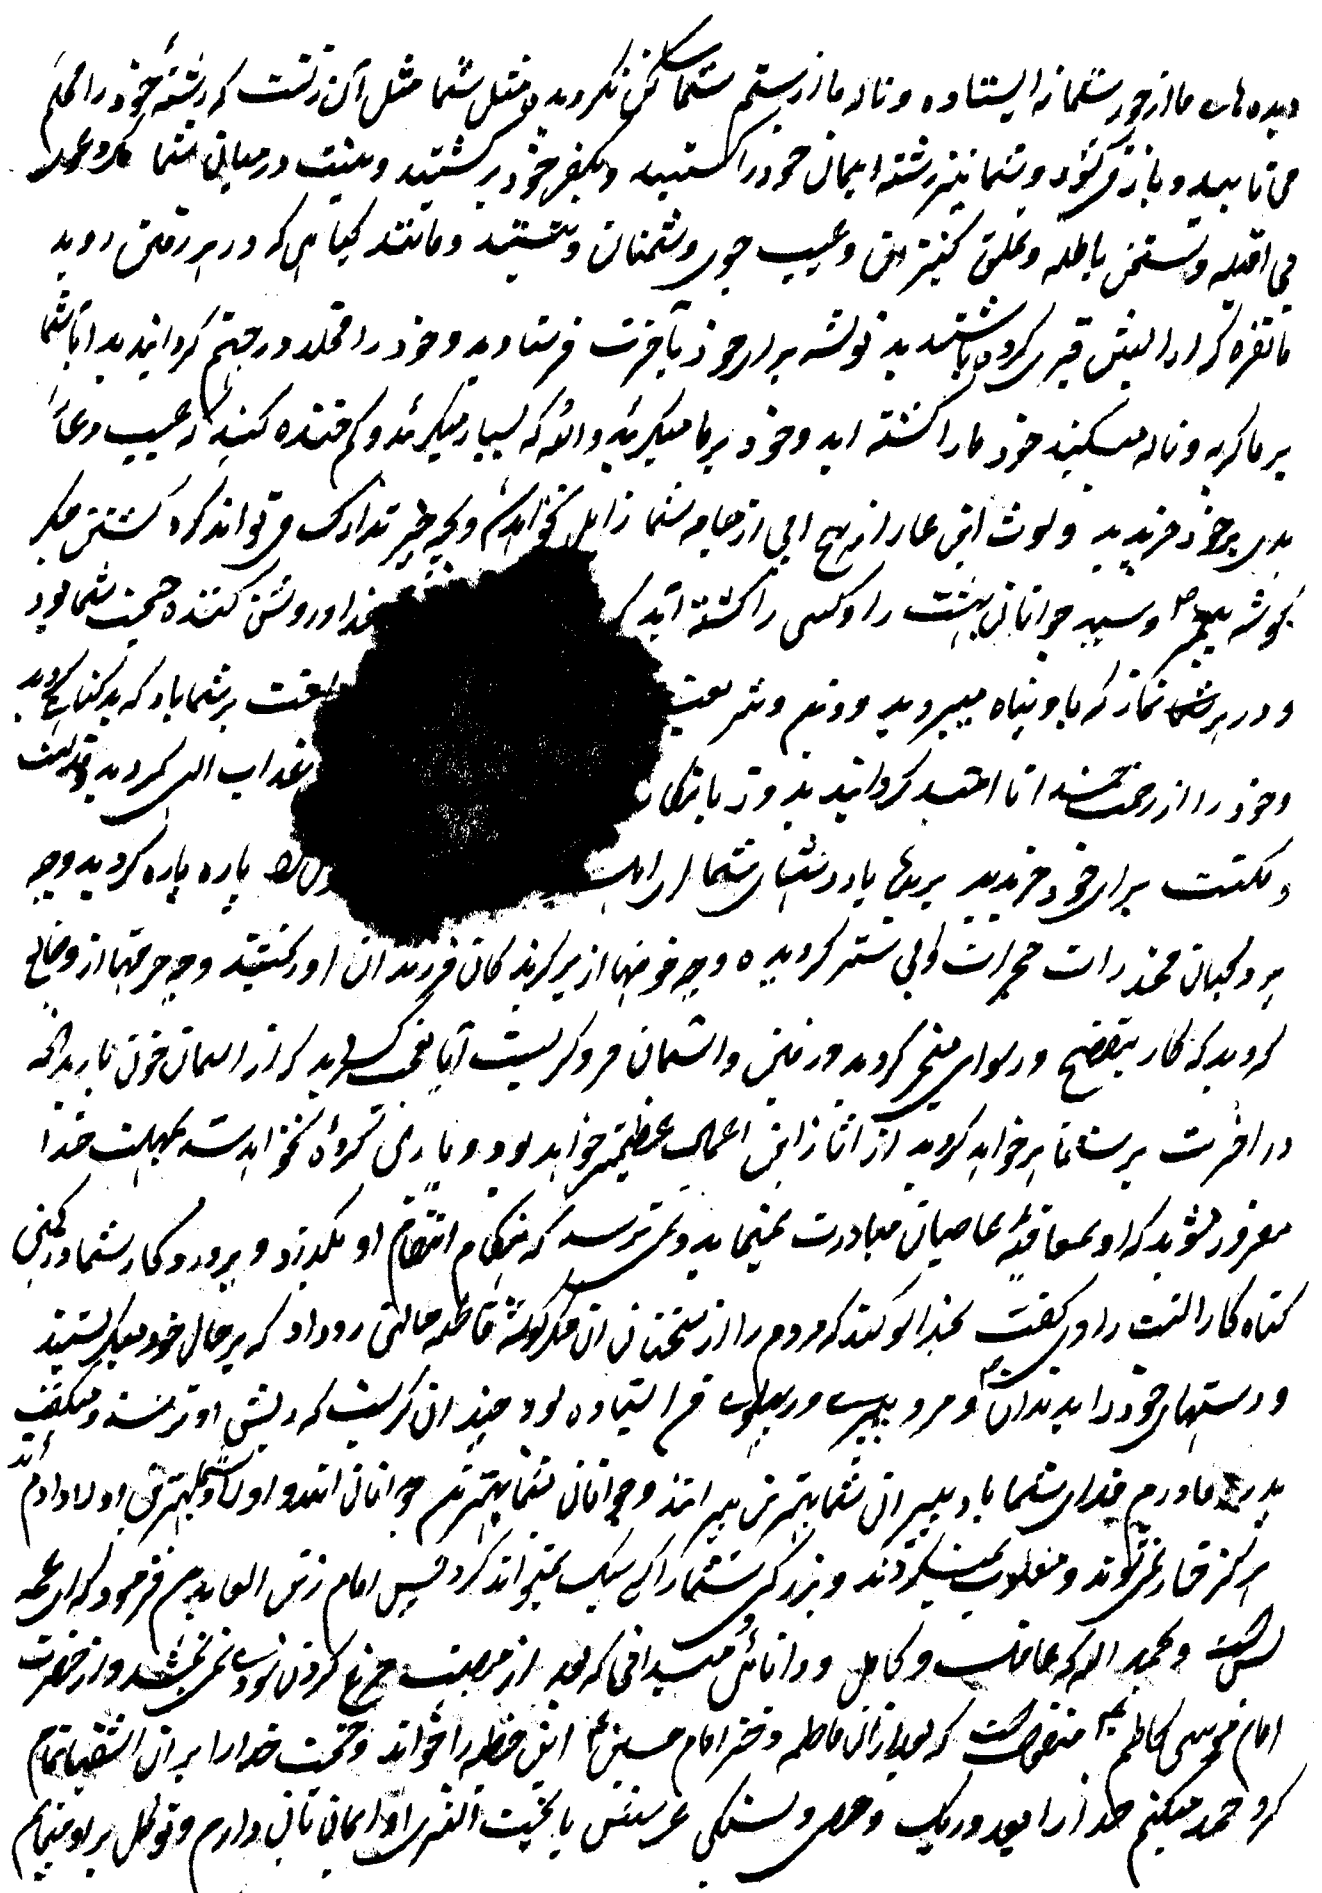 دیده های ما از جور شما نه ایستاده و ناله ما از ستم شما ساکن نگردیده مثل شما مثل آن زنست که رشته خود را محکم
می تابید و باز می گشود و شما نیز رشته ایمان خود را گسستید و بکفر خود برگشتید و نیست در میان شما مگر دعوی
بی اصل و سخن باطل و تملق کنیزان و عیب جوی دشمنان و نیستید و مانند گیاهی که در زمین روید
یا نقره که آرایش قبری کرده باشند بد توشه برای خود بآخرت فرستادید و خود را مخلد در جهنم گردانیدید ایا شما
بر ما گریه و ناله میکنید خود ما را کشته اید و خود بر ما میگریید والله که بسیار میگریید و کم خنده کنید که عیب و عار
بدی بر خود خریدید و لوث این عار از هیچ آبی از جامه شما زایل نخواهد شد و بچه چیز تدارک می تواند کرد کشتن جگر
گوشه پیغمبر و سید جوانان بهشت را و کسی را کشته اید که خدا و روشن کننده حجت شما بود
و در هر نماز که باو پناه میبردید و دین و شریعت لعنت بر شما باد که بد گناهی کردید
و خود را از رحمت خدا نا امید گردانیدید و زیانکار عذاب الهی گردیدید و مذلت
و مکنت برای خود خریدید بریده باد دستهای شما ای اهل را پاره پاره کردید و چه
پردگیان مخدرات حجرات او بی ستر کردید و چه خونها از برگزیدگان فرزندان او ریختید و چه حرمتها از وضایع
کردید که کار قبیح و رسوای کردید و زمین و آسمان فرو گریست آیا تعجب کردید که از آسمان خون بارید آنچه
در آخرت بر شما ظاهر خواهد گردید از آثار این اعمال عظیمتر خواهد بود و یاری کرده نخواهید شد بمهلت خدا
مغرور مشوید که او بمعاقبه عاصیان مبادرت نمینماید و نمی ترسد که هنگام انتقام او بگذرد و پروردگار شما در کمین
گناه کارانست راوی گفت بخدا سوگند که مردم را از سخنان آن جگرگوشه فاطمه حالتی روداد که بر حال خود میگریستند
و دستهای خود را بدندان و مرد پیری در پهلوی من ایستاده بود چندان گریست که ریش او تر شد و میگفت
پدر و مادرم فدای شما باد پیران شما بهترین پیرانند و جوانان شما بهترین جوانان اند و اولاد شما بهترین اولاد آدم اند
هرگز خوار نمی شوند و مغلوب نمیگردند و بزرگی شما را کسی سلب نمیتواند کرد پس امام زین العابدین فرمود که ای عمه
بس است و بحمد الله که عاقل و کامل و دانائی و میدانی که بعد از مصیبت جزع کردن سودی نمی بخشد و از حضرت
امام موسی کاظم منقولست که بعد از آن فاطمه دختر امام حسین این خطبه را خواند و حجت خدا را بر آن اشقیا تمام
کرد حمد میکنم خدا را بعدد ریک و حصی و سنگی عرش تا تحت الثری او ایمان دارم و توکل بر او مینمایم